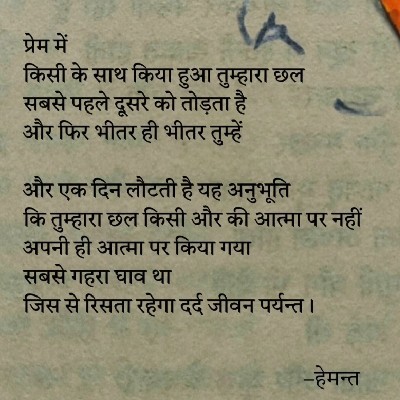 प्रेम में
किसी के साथ किया हुआ तुम्हारा छल
सबसे पहले दूसरे को तोड़ता है
और फिर भीतर ही भीतर तुम्हें
और एक दिन लौटती है यह अनुभूति
कि तुम्हारा छल किसी और की आत्मा पर नहीं
अपनी ही आत्मा पर किया गया
सबसे गहरा घाव था
जिस से रिसता रहेगा दर्द जीवन पर्यन्त।
–हेमन्त